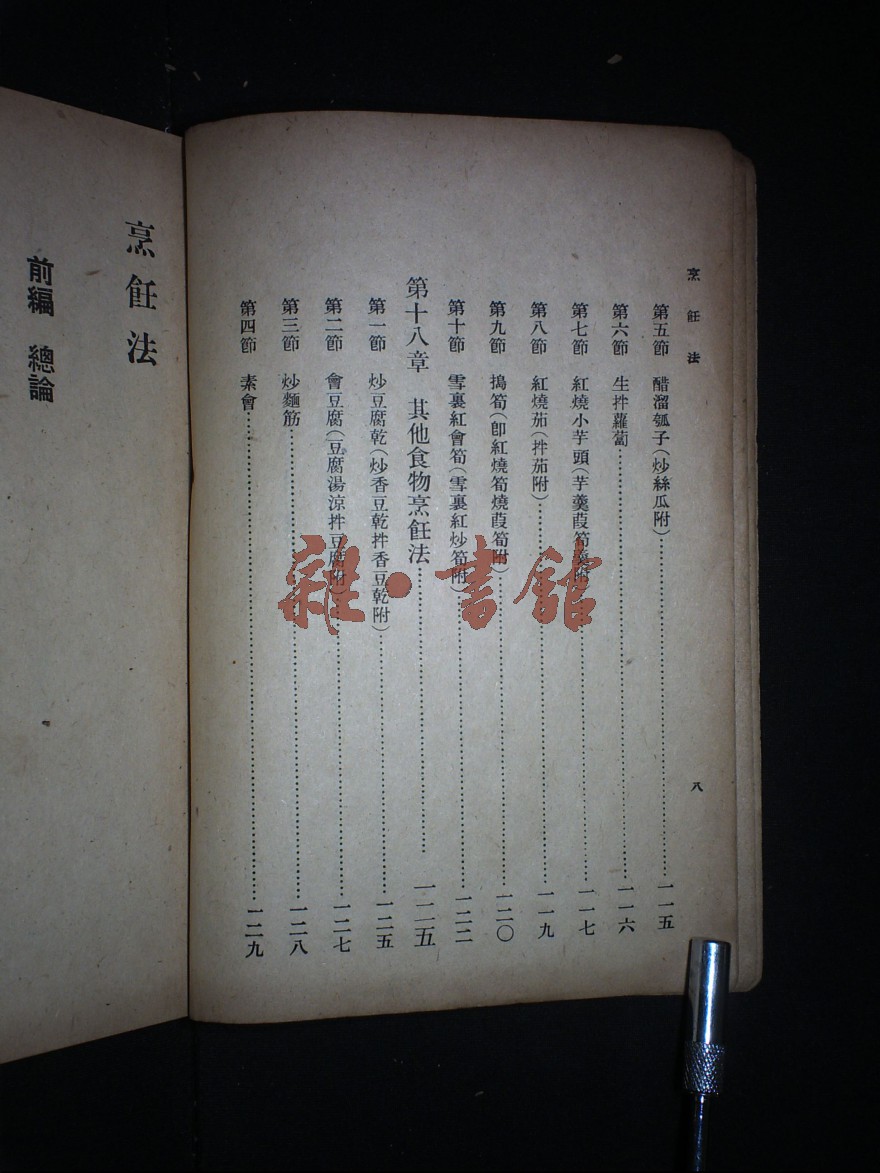 烹飪法
八
第五節 醋溜瓠子(炒絲瓜附)……一一五
第六節 生拌蘿蔔……一一六
第七節 紅燒小芋頭(芋羹葭筍羹附)……一一七
第八節 紅燒茄(拌茄附)……一一九
第九節 搗筍(卽紅燒筍燒葭筍附)……一二〇
第十節 雪裏紅會筍(雪裏紅炒筍附)……一二二
第十八章 其他食物烹飪法……一二五
第一節 炒豆腐乾(炒香豆乾拌香豆乾附)……一二五
第二節 會豆腐(豆腐湯涼拌豆腐附)……一二七
第三節 炒麵筋……一二八
第四節 素會……一二九
烹飪法
前編 總論
雜·書館